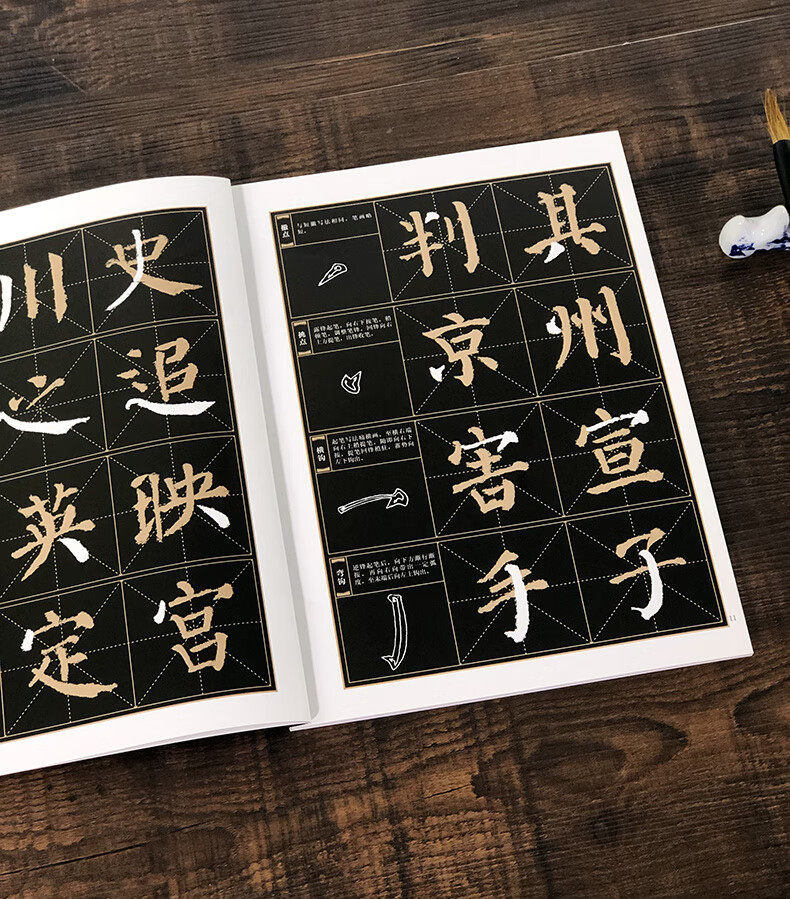 川史
之追
英映
定宫
撇点
与短撇写法相同，笔画略
短。
判其
挑点
露锋起笔，向右下按笔，稍
顿笔，调整笔锋，回锋向右
上方提笔，出锋收笔。
京州
横钩
起笔写法略横画，至横右端
向右上稍提笔，随即向右下
按，提笔回锋稍驻，蓄势向
左下钩出。
害宣
弯钩
逆锋起笔后，向下方渐行渐
按，再向右向带出一定弧
度，至末端后向左上钩出。
手子
11